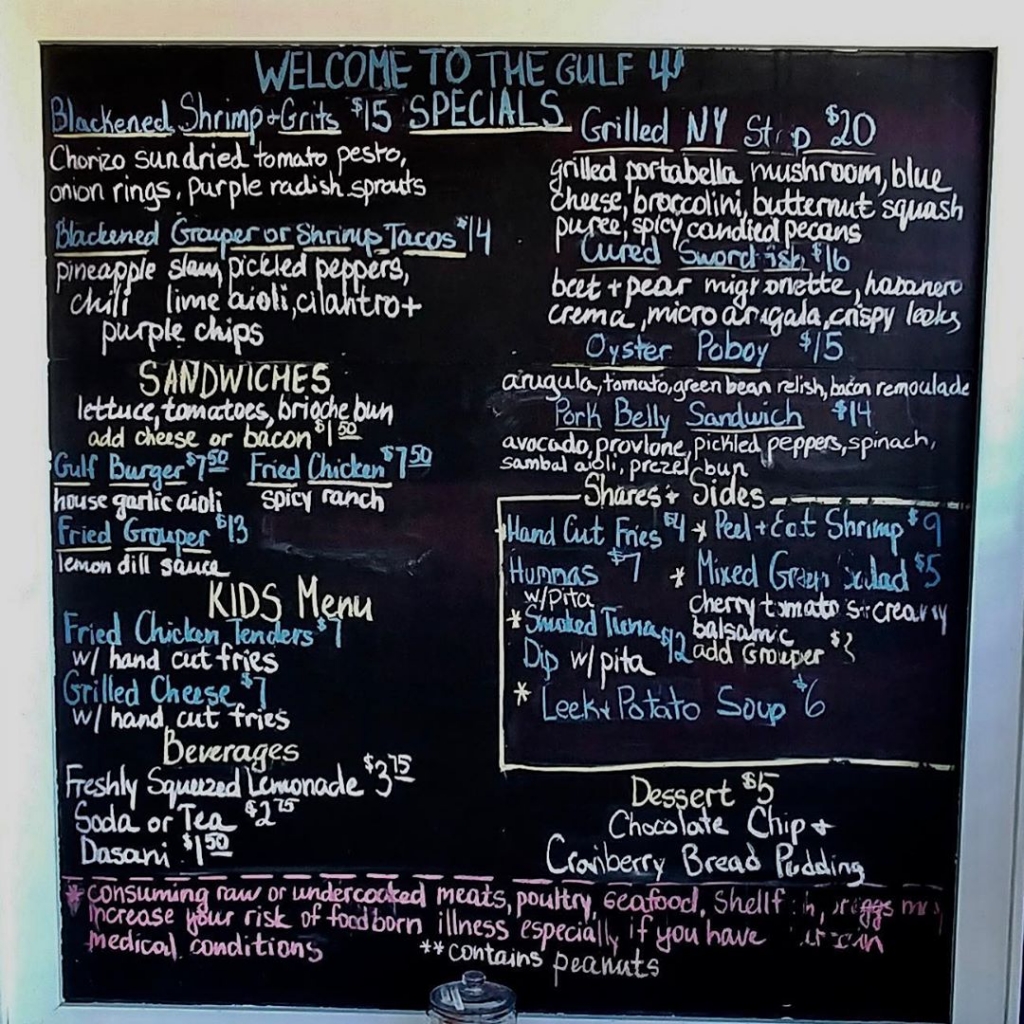 WELCOME TO THE GULF
SPECIALS
Blackened Shrimp + Grits $15
Chorizo sundried tomato pesto,
onion rings, purple radish sprouts
Blackened Grouper or Shrimp Tacos $14
pineapple slaw, pickled peppers,
chili lime aioli, cilantro +
purple chips
SANDWICHES
lettuce, tomatoes, brioche bun
add cheese or bacon $1 50
Gulf Burger $7 50 Fried Chicken $7 50
house garlic aioli spicy ranch
Fried Grouper $13
lemon dill sauce
KIDS Menu
Fried Chicken Tenders $7
w/ hand cut fries
Grilled Cheese $7
w/ hand cut fries
Beverages
Freshly Squeezed Lemonade $3 75
Soda or Tea $2 75
Dasani $1 50
Grilled NY Strip $20
grilled portabella mushroom, blue
cheese, broccolini, butternut squash
puree, spicy candied pecans
Cured Swordfish $16
beet + pear migronette, habanero
crema, micro arugala, crispy leeks
Oyster Poboy $15
arugula, tomato, green bean relish, bacon remoulade
Pork Belly Sandwich $14
avocado, provlone, pickled peppers, spinach,
sambal aioli, prezel bun
Shares + Sides
Hand Cut Fries $4 * Peel + Eat Shrimp $9
Hummas $7 * Mixed Green Salad $5
w/pita cherry tomato
* Smoked Tuna $12 balsamic
Dip w/ pita add Grouper $3
* Leek + Potato Soup $6
Dessert $5
Chocolate Chip +
Cranberry Bread Pudding
* consuming raw or undercooked meats, poultry, seafood, shellfish, or eggs may
increase your risk of foodborn illness especially if you have
medical conditions
** contains peanuts